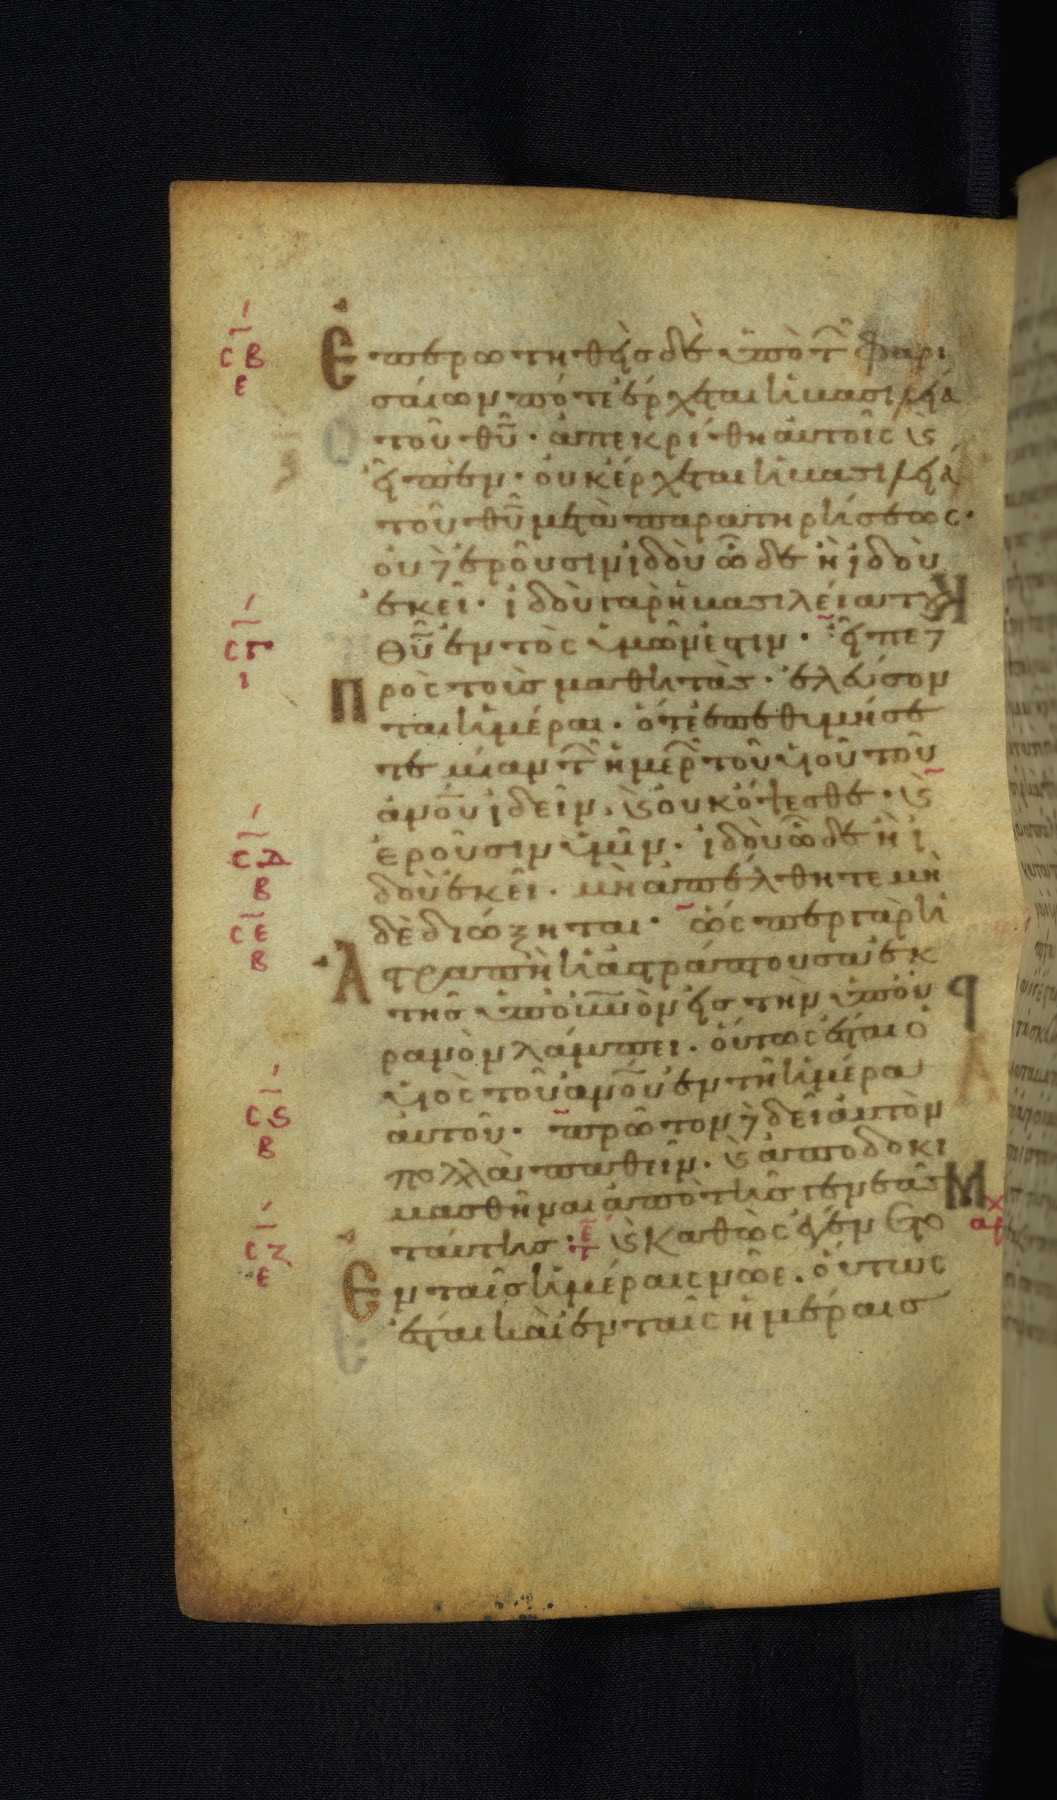 Ἐπερωτηθεὶς δὲ ὑπὸ τῶν φαρι
σαίων πότε ἔρχεται ἡ βασιλεία
τοῦ θῦ· ἀπεκρίθη αὐτοῖς καὶ
εἶπεν· οὐκ ἔρχεται ἡ βασιλεία
τοῦ θῦ μετὰ παρατηρήσεως·
οὐδὲ ἐροῦσιν ἰδοὺ ὧδε ἢ ἰδοὺ
ἐκεῖ· ἰδοὺ γὰρ ἡ βασιλεία τοῦ
θῦ ἐντὸς ὑμῶν ἐστιν· εἶπε δὲ
Πρὸς τοὺς μαθητάς· ἐλεύσον
ται ἡμέραι· ὅτε ἐπεθιμήσε
τε μίαν τῶν ἡμερῶν τοῦ υἱοῦ τοῦ
ἀνου ἰδεῖν. καὶ οὐκ ὄψεσθε· καὶ
ἐροῦσιν ὑμῖν· ἰδοὺ ὧδε ἢ ἰ
δοὺ ἐκεῖ· μὴ ἀπέλθητε μὴ
δὲ διώξηται· ὥσπερ γὰρ ἡ
Ἀστραπὴ ἡ ἀστράπτουσα ἐκ
τῆς ὑπ οὐνὸν εἰς τὴν ὑπ οὐ
ρανὸν λάμπει· οὕτως ἔσται ὁ
υἱὸς τοῦ ἀνου ἐν τῇ ἡμέρα
αὐτοῦ· πρῶτον δὲ δεῖ αὐτὸν
πολλὰ παθεῖν· καὶ ἀποδοκι
μασθῆναι ἀπὸ τῆς γενεᾶς
ταύτης· καὶ Καθὼς ἐγένετο
Ἐν ταῖς ἡμέραις νῶε. οὕτως
ἔσται καὶ ἐν ταῖς ἡμέραις